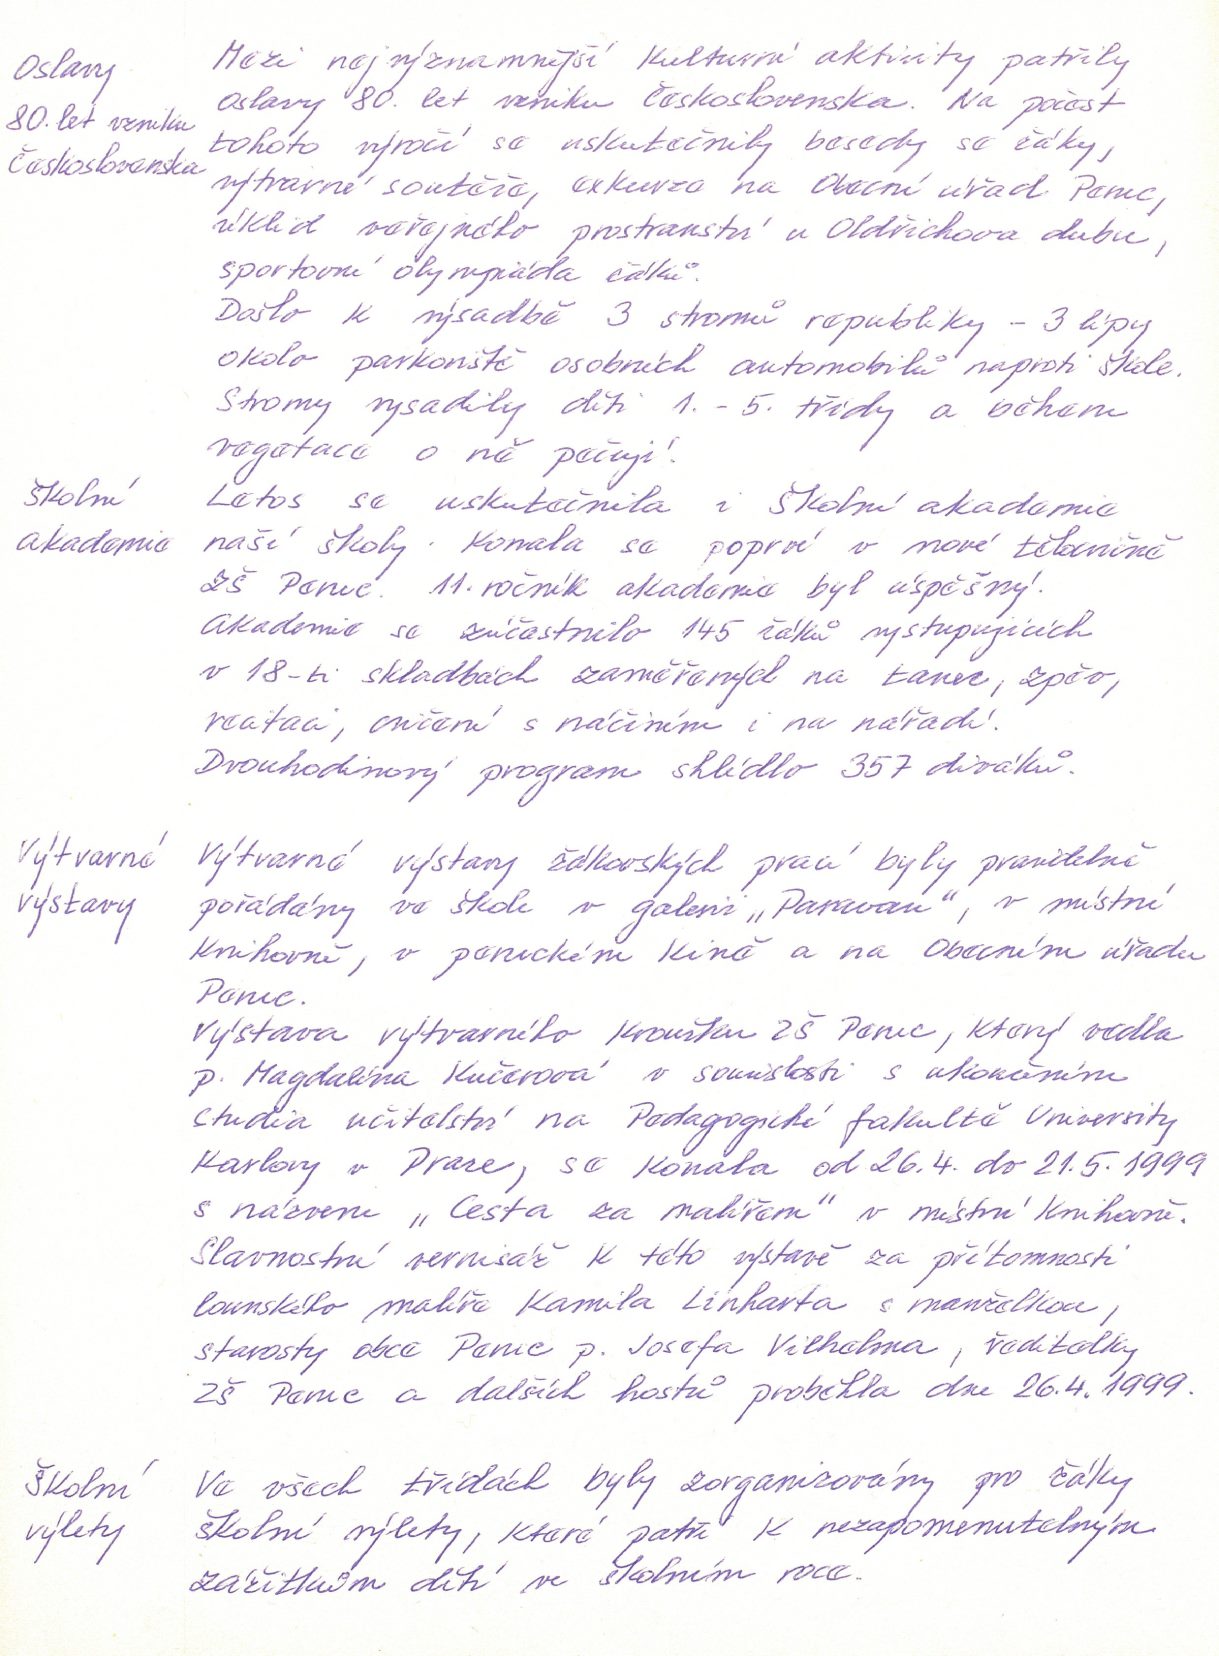 Oslavy
80. let vzniku
Československa
Mezi nejvýznamnější kulturní aktivity patřily
oslavy 80. let vzniku Československa. Na počest
tohoto výročí se uskutečnily besedy se žáky,
výtvarné soutěže, exkurze na Obecní úřad Peruc,
úklid veřejného prostranství u Oldřichova dubu,
sportovní olympiáda žáků.
Došlo k výsadbě 3 stromů republiky - 3 lípy
okolo parkoviště osobních automobilů naproti škole.
Stromy vysadily děti 1. - 5. třídy a během
vegetace o ně pečují.
Školní
akademie
Letos se uskutečnila i školní akademie
naší školy. Konala se poprvé v nové tělocvičně
ZŠ Peruc. 11. ročník akademie byl úspěšný.
Akademie se zúčastnilo 145 žáků vystupujících
v 18-ti skladbách zaměřených na tanec, zpěv,
recitaci, cvičení s náčiním i na nářadí.
Dvouhodinový program shlédlo 357 diváků.
Výtvarné
výstavy
Výtvarné výstavy žákovských prací byly pravidelně
pořádány ve škole v galerii „Paravan“, v místní
knihovně, v peruckém kině a na Obecním úřadu
Peruc.
Výstava výtvarného kroužku ZŠ Peruc, který vedla
p. Magdaléna Kučerová v souvislosti s ukončením
studia učitelství na Pedagogické fakultě University
Karlovy v Praze, se konala od 26.4. do 21.5. 1999
s názvem „Cesta za malířem“ v místní knihovně.
Slavnostní vernisáž k této výstavě za přítomnosti
lounského malíře Kamila Linharta s manželkou,
starosty obce Peruc p. Josefa Vilhelma, ředitelky
ZŠ Peruc a dalších hostů proběhla dne 26.4. 1999.
Školní
výlety
Ve všech třídách byly zorganizovány pro žáky
školní výlety, které patří k nezapomenutelným
zážitkům dětí ve školním roce.